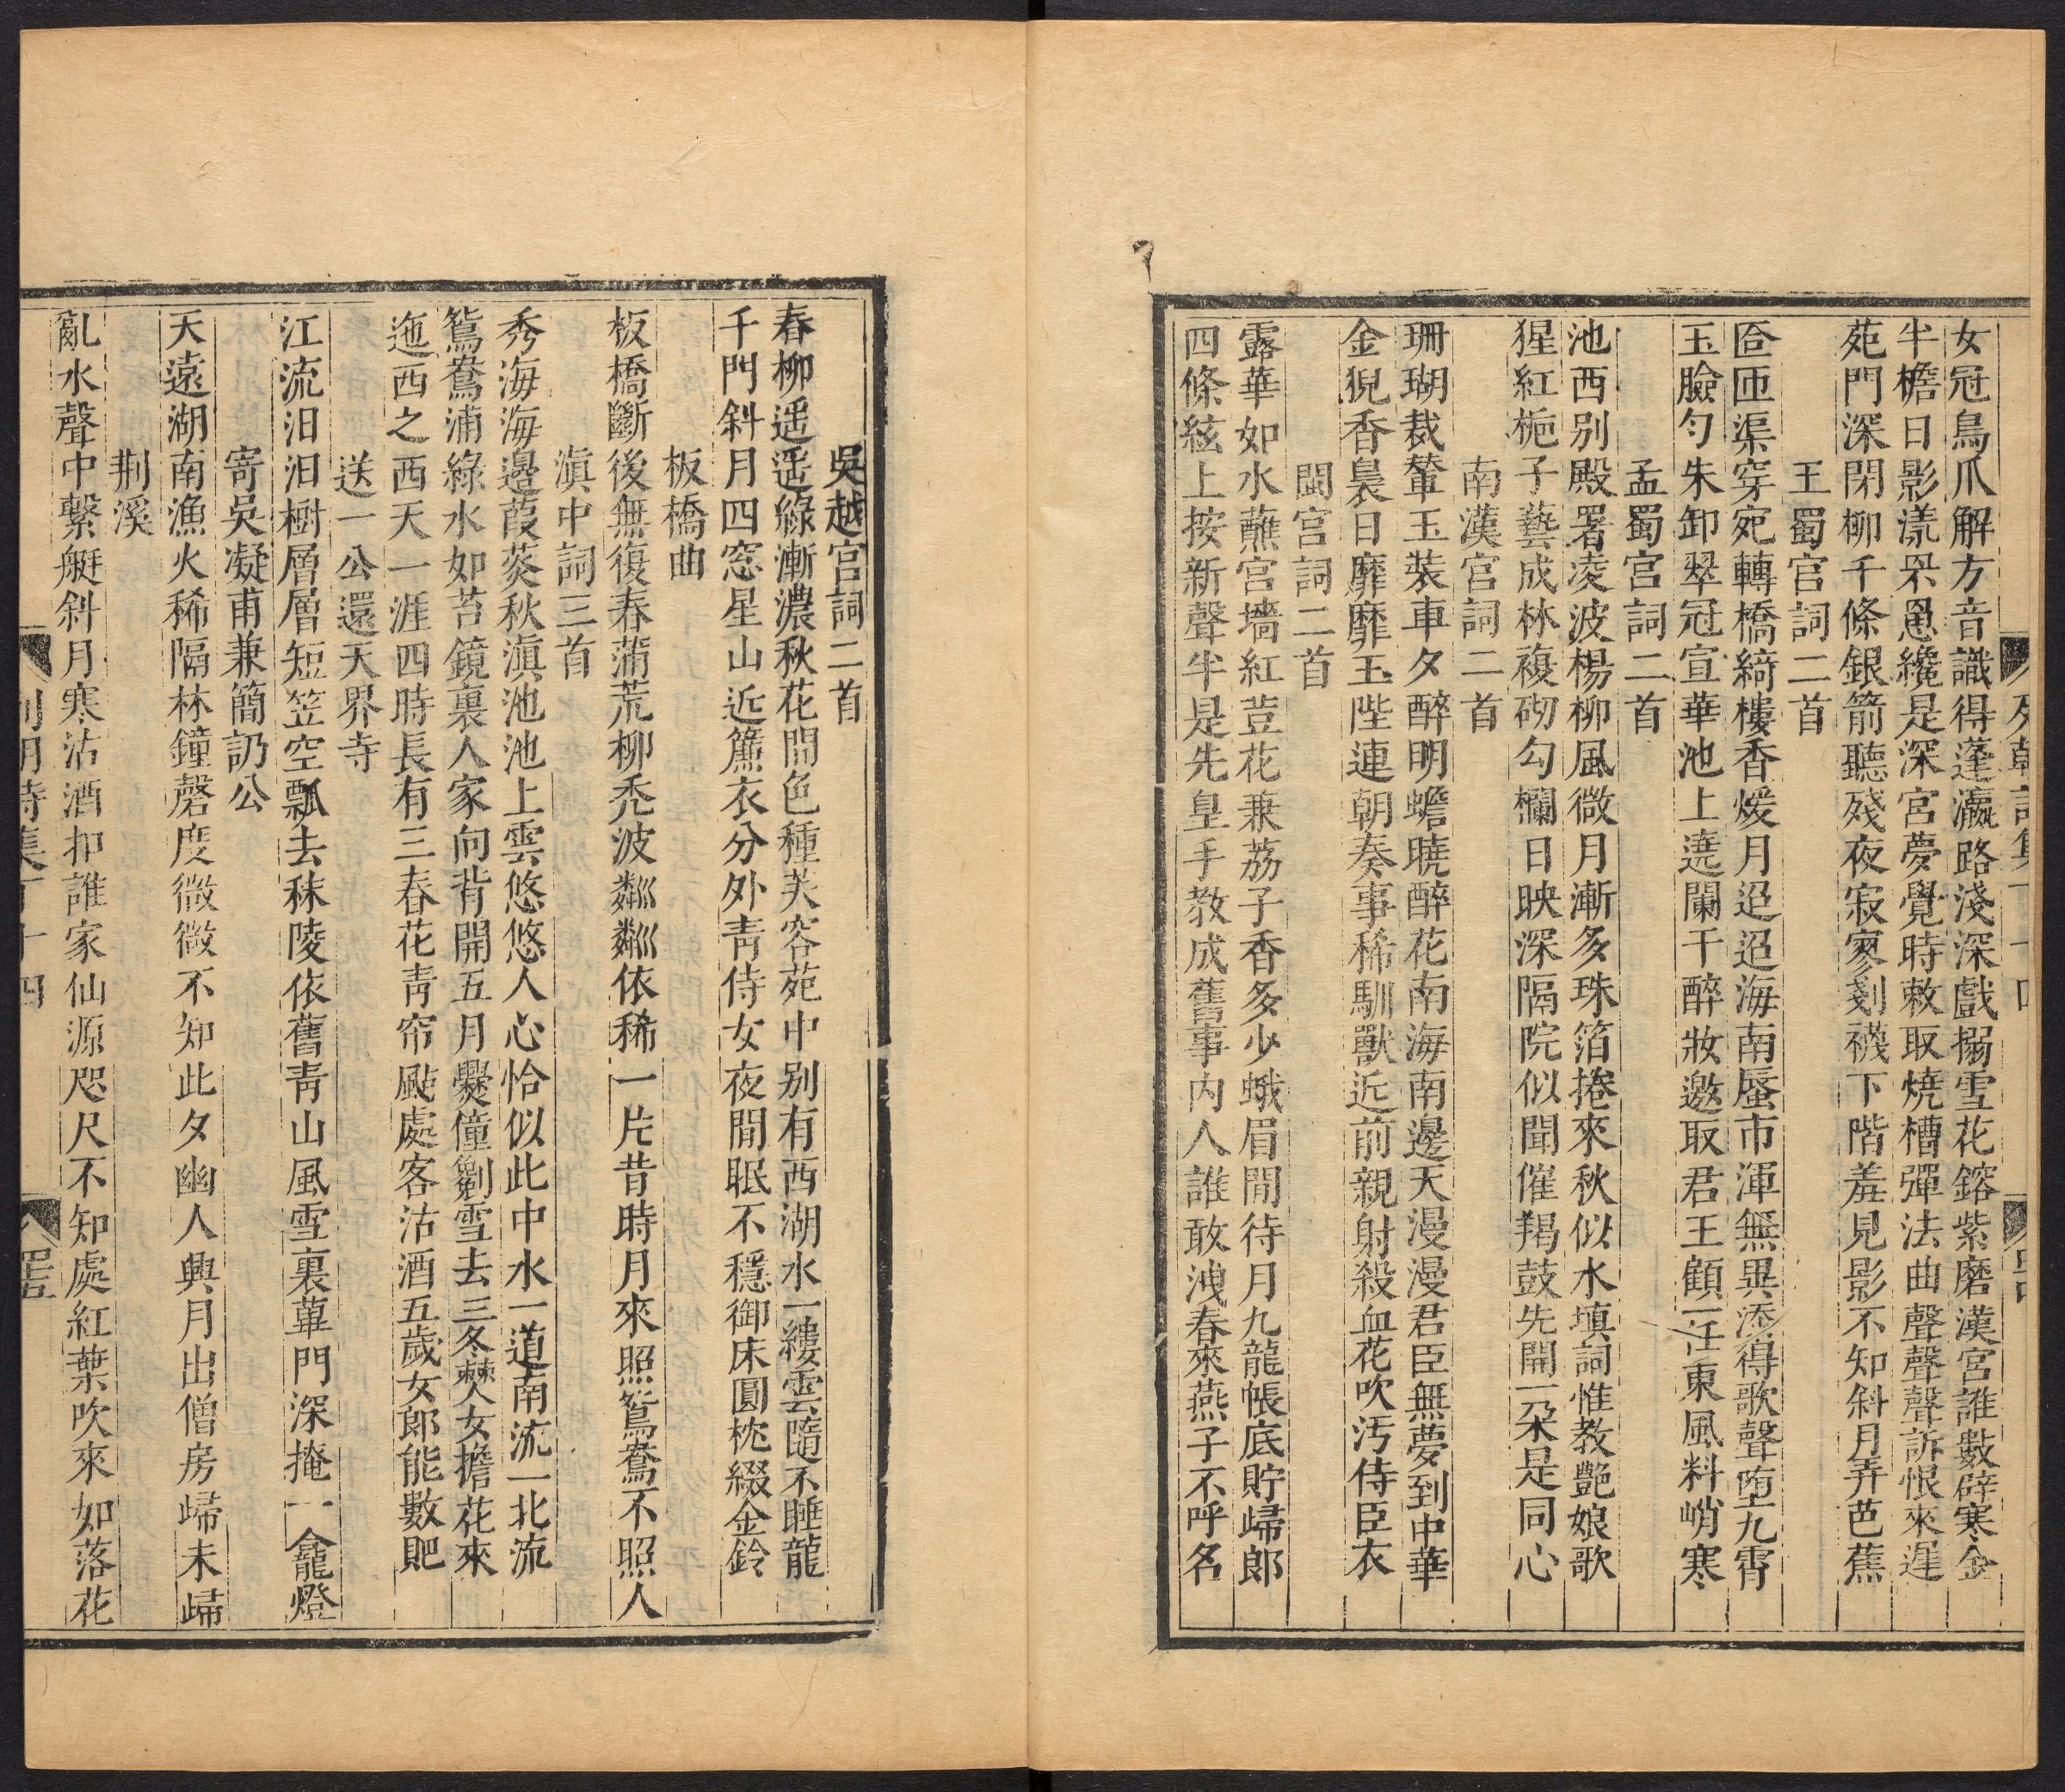 女冠鳥爪解方音識得蓬瀛路淺深戲搦雪花鎔紫磨漢宮誰數辟寒金
半檐日影漾罘罳纔是深宮夢覺時敕取燒槽彈法曲聲聲訴恨來遲
苑門深閉柳千條銀箭聽殘夜寂寥剗襪下階羞見影不知斜月弄芭蕉
王蜀宮詞二首
匼匝渠穿宛轉橋綺樓香煖月迢迢海南蜃市渾無異添得歌聲堕九霄
玉臉勻朱卸翠冠宣華池上遶闌干醉妝邀取君王顧一任東風料峭寒
孟蜀宮詞二首
池西別殿署凌波楊柳風微月漸多珠箔捲來秋似水填詞惟教艷娘歌
猩紅梔子藝成林複砌勾欄日映深隔院似聞催羯鼓先開一朶是同心
南漢宮詞二首
珊瑚裁輦玉裝車夕醉明蟾曉醉花南海南邊天漫漫君臣無夢到中華
金猊香裊日靡靡玉陛連朝奏事稀馴獸近前親射殺血花吹汚侍臣衣
閩宮詞二首
露華如水蘸宮墻紅荳花兼荔子香多少蛾眉閒待月九龍帳底貯歸郎
四條絃上按新聲半是先皇手教成舊事內人誰敢洩春來燕子不呼名
吳越宮詞二首
春柳遥遥綠漸濃秋花間色種芙容苑中別有西湖水一縷雲隨不睡龍
千門斜月四窓星山近簾衣分外靑侍女夜閒眠不穩御床圓枕綴金鈴
板橋曲
板橋斷後無復春蒲荒柳禿波粼粼依稀一片昔時月來照鴛鴦不照人
滇中詞三首
秀海海邊葭菼秋滇池池上雲悠悠人心恰似此中水一道南流一北流
鴛鴦浦綠水如苔鏡裏人家向背開五月爨僮劖雪去三冬僰女擔花來
迤西之西天一涯四時長有三春花靑帘颭處客沽酒五歲女郎能數𧴩
送一公還天界寺
江流汨汨樹層層短笠空瓢去秣陵依舊靑山風雪裏蓽門深掩一龕燈
寄吳凝甫兼簡訒公
天遠湖南漁火稀隔林鐘磬度微微不知此夕幽人興月出僧房歸未歸
荆溪
亂水聲中繫艇斜月寒沽酒扣誰家仙源咫尺不知處紅葉吹來如落花